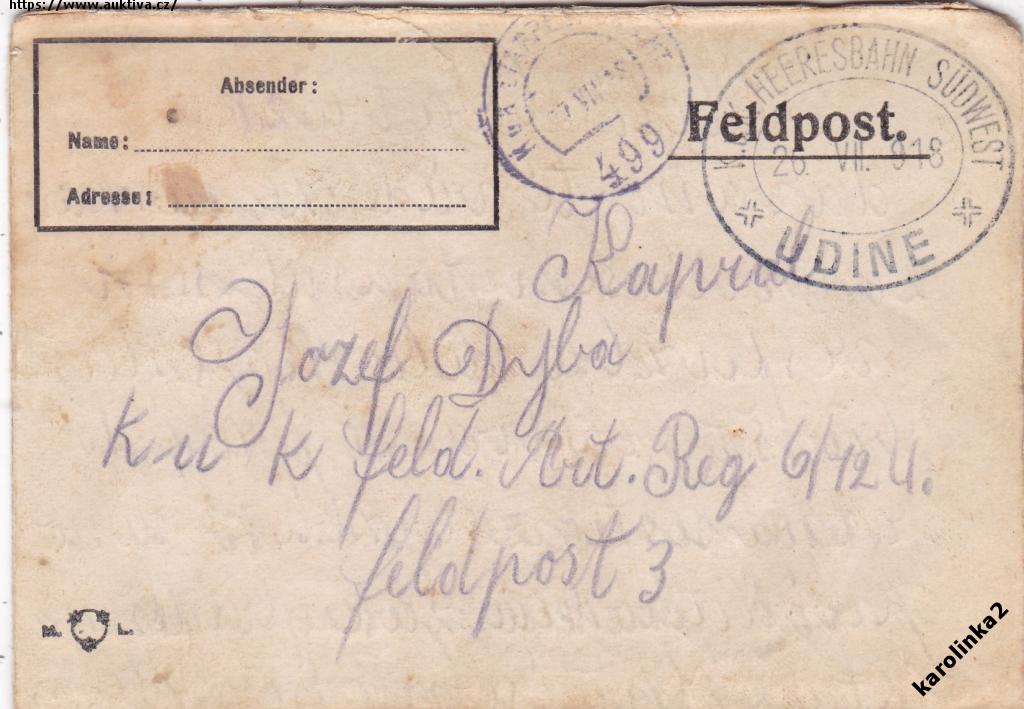 https://www.auktiva.cz/
Absender:
Name:
Adresse:
K.u.K. ETAPPENPOSTAMT
VII
499
Feldpost.
K.u.K. HEERESBAHN SÜDWEST
26. VII. 918
UDINE
Kapral
Jozef Dyba
K u K feld. Art. Reg 6/124.
feldpost 3
M. L.
karolinka2